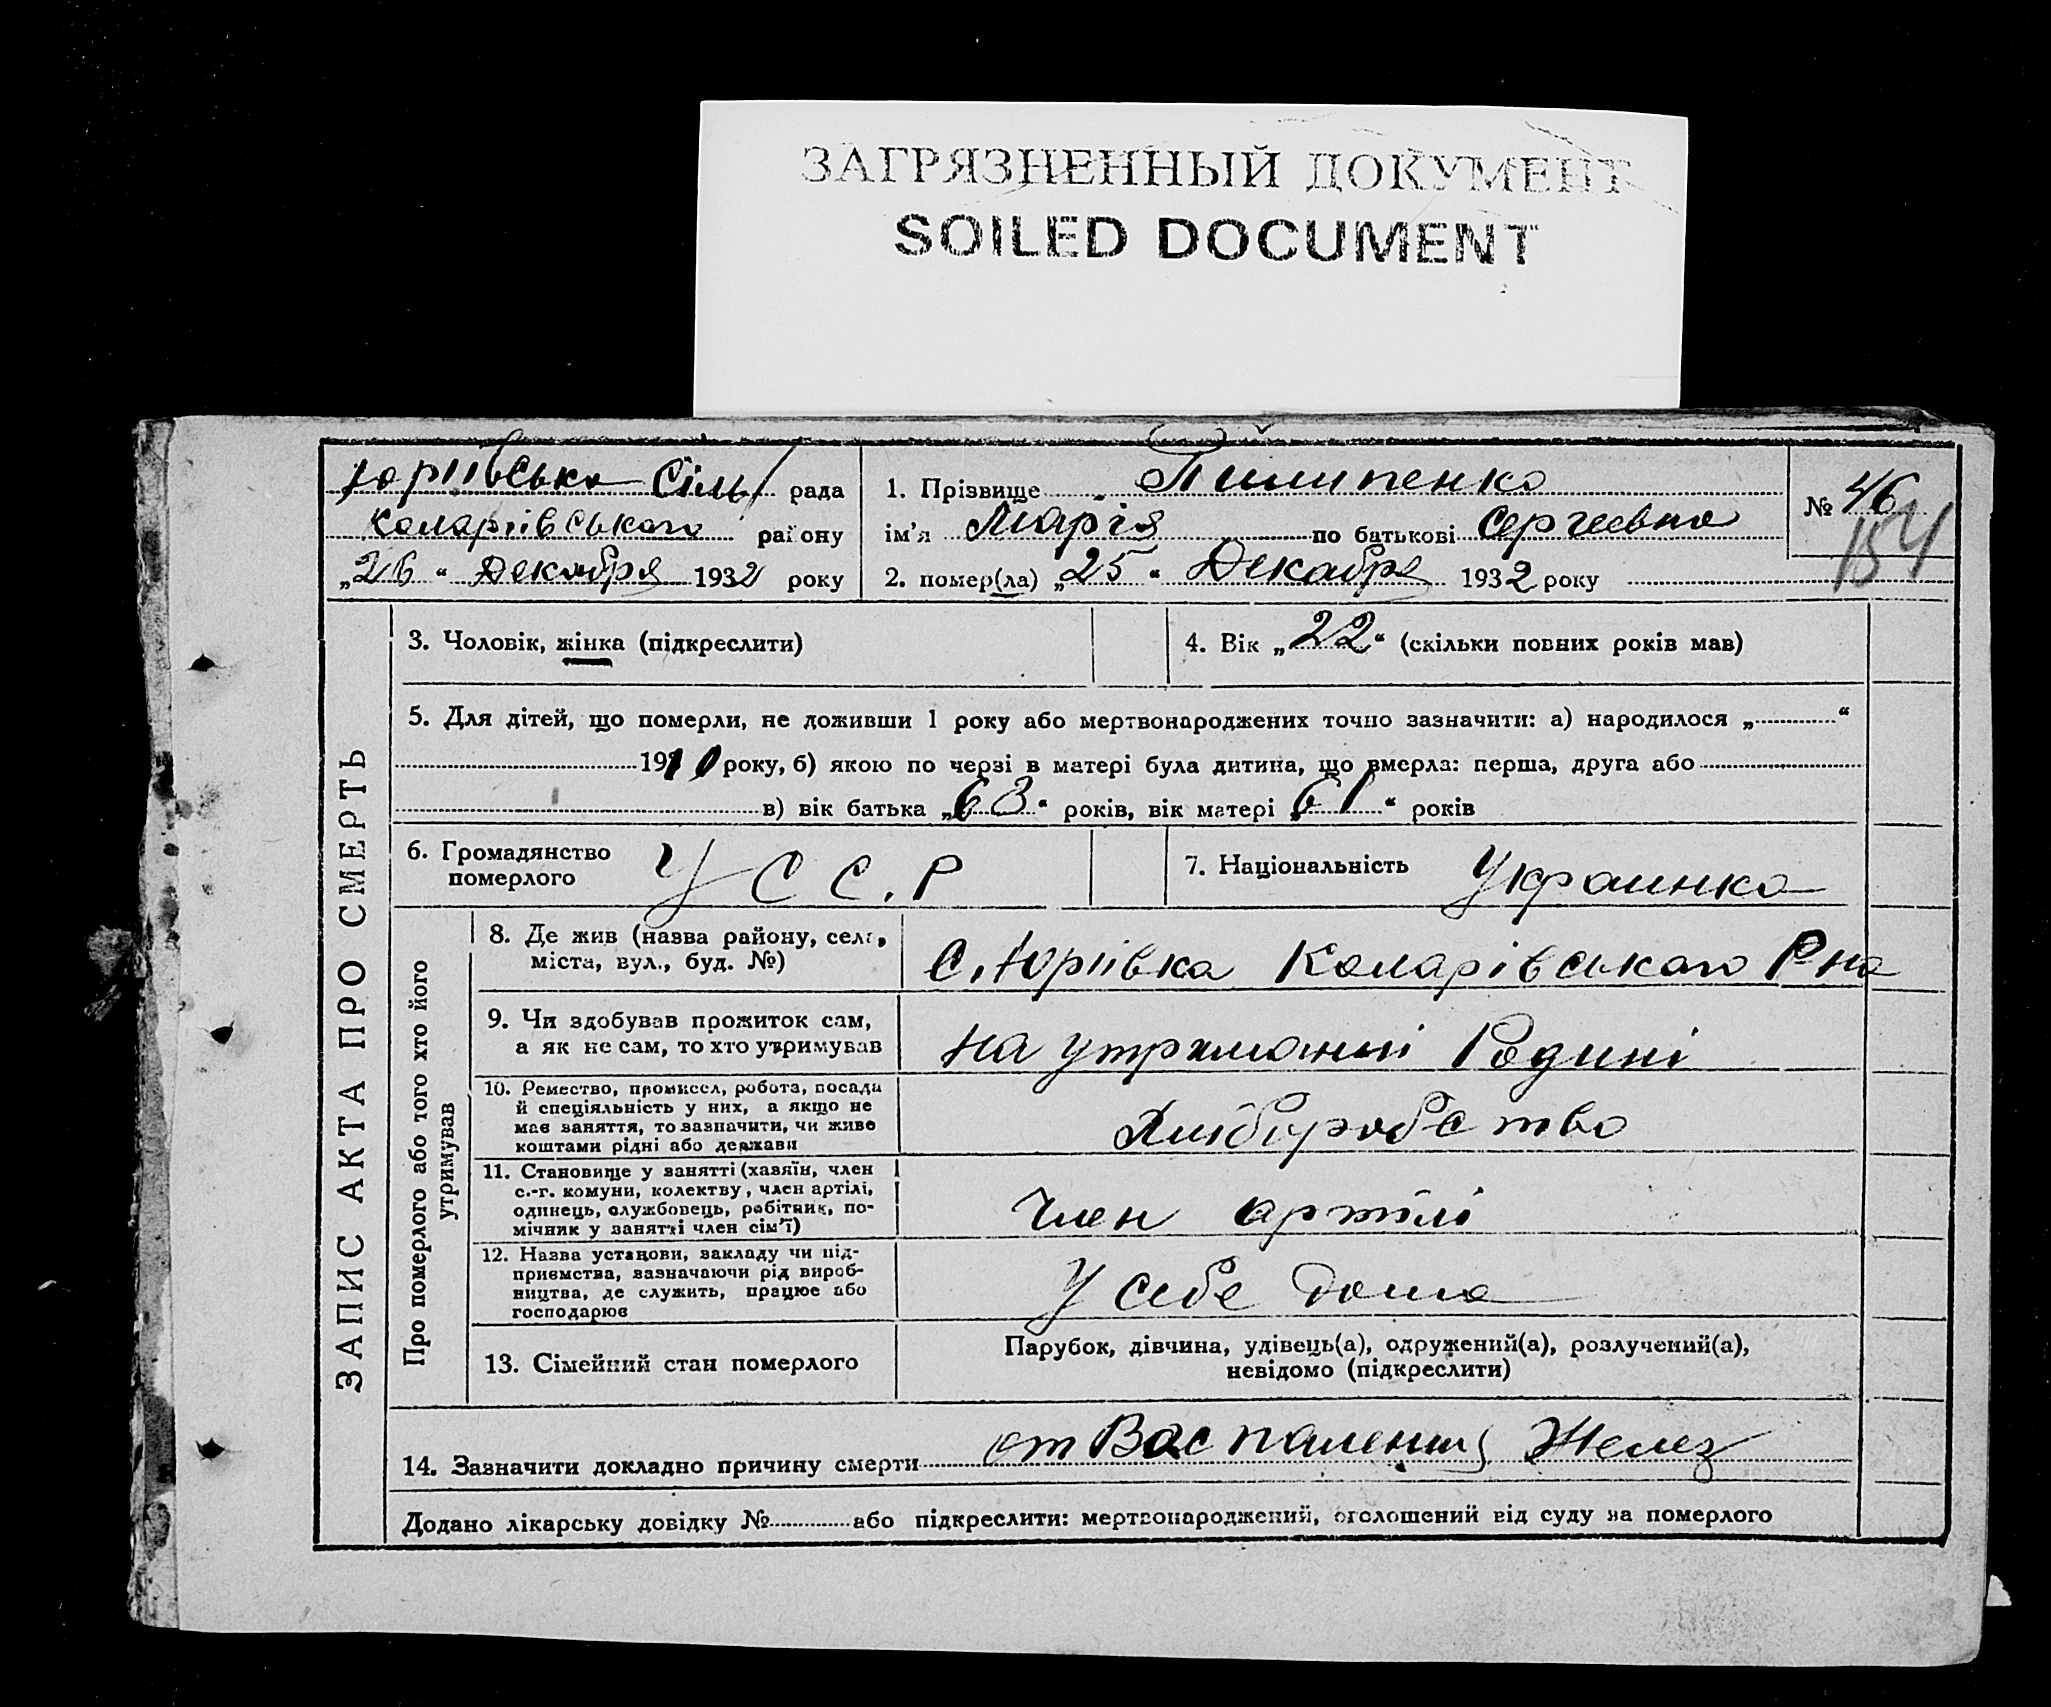 ЗАГРЯЗНЕННЫЙ ДОКУМЕНТ
SOILED DOCUMENT
Юріівська Сіль/ рада
Коларіівського району
„26“ Декабря 1932 року
1. Прізвище Пилипенко
ім’я Марія по батькові Сергеевна
2. помер(ла) „25“ Декабря 1932 року
№ 46
154
ЗАПИС АКТА ПРО СМЕРТЬ
3. Чоловік, жінка (підкреслити)
4. Вік „22“ (скільки повних років мав)
5. Для дітей, що померли, не доживши 1 року або мертвонароджених точно зазначити: а) народилося „ “
1910 року, б) якою по черзі в матері була дитина, що вмерла: перша, друга або
в) вік батька „63“ років, вік матері „61“ років
6. Громадянство
померлого
У С С . Р
7. Національність Украинка
Про померлого або того хто його
утримував
8. Де жив (назва району, села,
міста, вул., буд. №)
С. Юріівка Коларівського Р-на
9. Чи здобував прожиток сам,
а як не сам, то хто утримував
на утриманні Родині
10. Ремество, промисел, робота, посада
й спеціяльність у них, а якщо не
має заняття, то зазначити, чи живе
коштами рідні або держави
Хліборобство
11. Становище у занятті (хазяїн, член
с.-г. комуни, колектву, член артілі,
одинець, службовець, робітник, по-
мічник у занятті член сім’ї)
Член артілі
12. Назва установи, закладу чи під-
приємства, зазначаючи рід вироб-
ництва, де служить, працює або
господарює
У себе дома
13. Сімейний стан померлого
Парубок, дівчина, удівець(а), одружений(а), розлучений(а),
невідомо (підкреслити)
14. Зазначити докладно причину смерти от Воспаления Желез
Додано лікарську довідку № або підкреслити: мертвонароджений, оголошений від суду за померлого